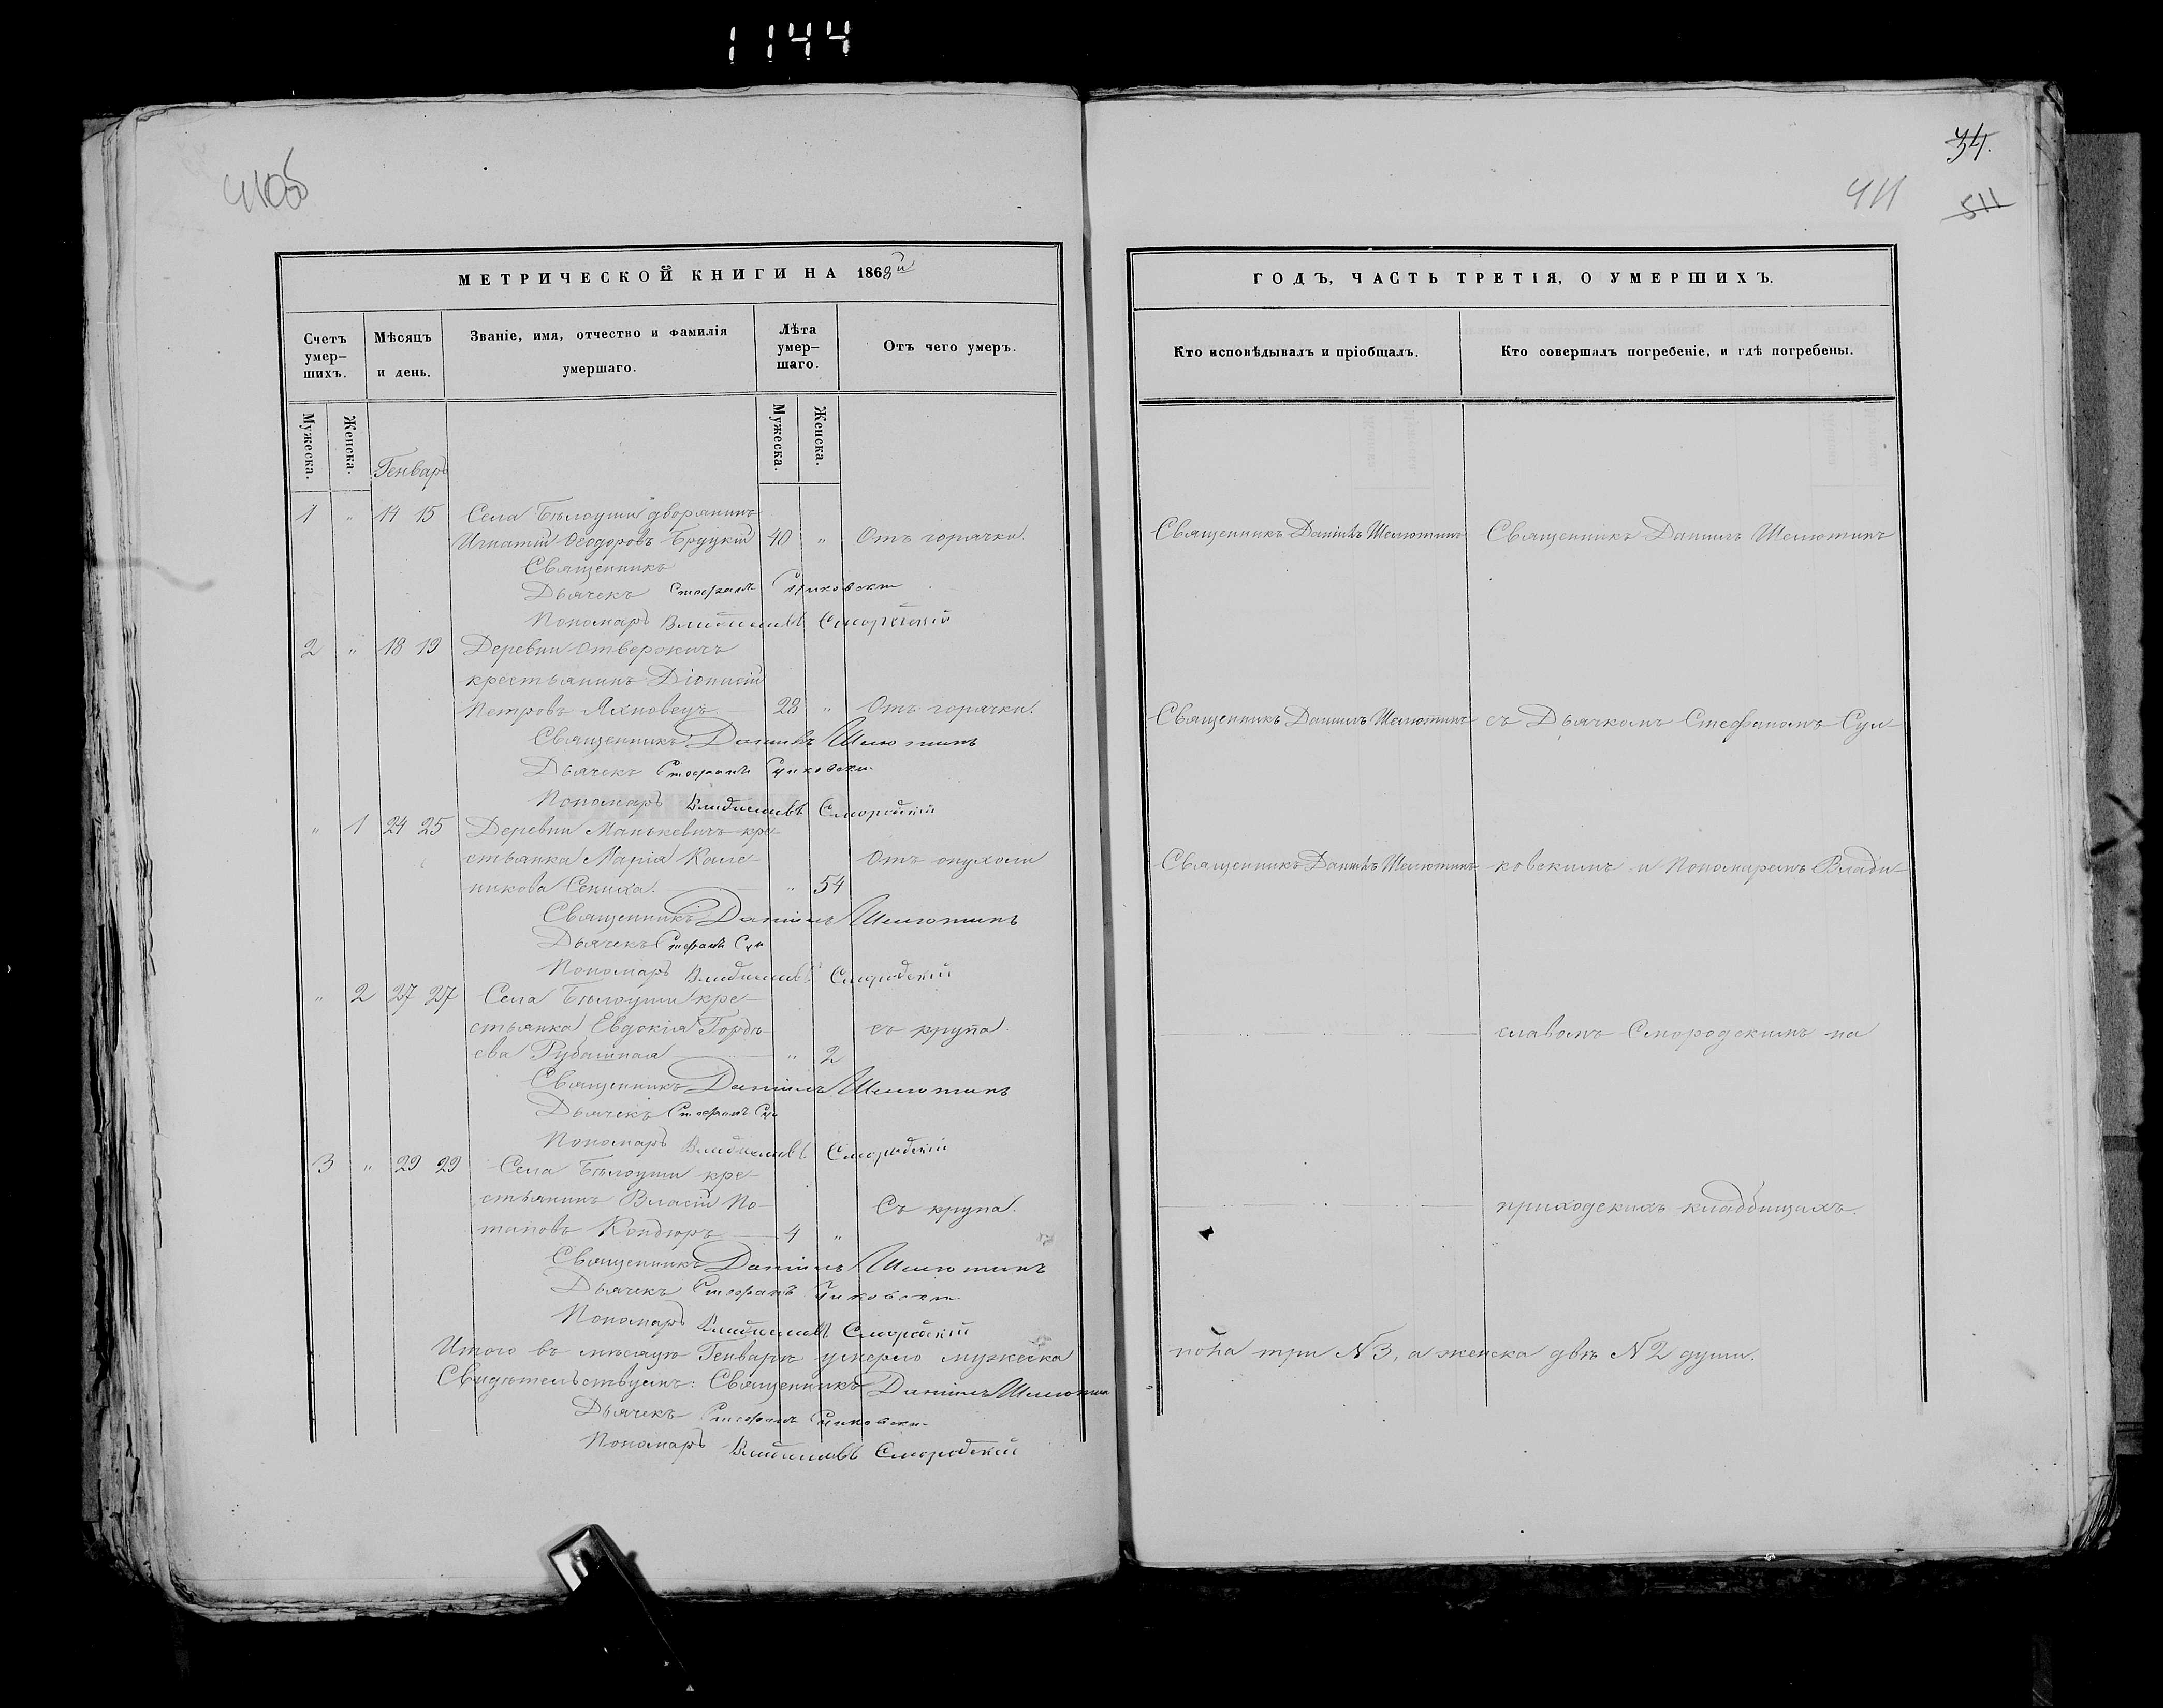 1144
410об
34.
411
511
МЕТРИЧЕСКОЙ КНИГИ НА 1868й
ГОДЪ, ЧАСТЬ ТРЕТІЯ, О УМЕРШИХЪ.
Счетъ умер-
шихъ.
Мѣсяцъ
и день.
Званіе, имя, отчество и фамилія
умершаго.
Лѣта
умер-
шаго.
Отъ чего умеръ.
Кто исповѣдывалъ и пріобщалъ.
Кто совершалъ погребеніе, и гдѣ погребены.
Мужеска.
Женска.
Мужеска.
Женска.
Генварь
1 " 14 15 Села Бѣлоуши дворянинъ
Игнатій Ѳеодоровъ Бруцкій 40 " Отъ горячки. Священникъ Даніилъ Шелютинъ Священникъ Даніилъ Шелютинъ
Священникъ
Дьячекъ Стефанъ
Пономарь Владиславъ Смородскій
2 " 18 19 Деревни Отвержичъ
крестьянинъ Діонисій
Петровъ Яхновецъ 28 " Отъ горячки. Священникъ Даніилъ Шелютинъ съ Дьячкомъ Стефаномъ Сул-
Священникъ Даніилъ Шелютинъ
Дьячекъ Стефанъ
Пономарь Владиславъ Смородскій
" 1 24 25 Деревни Манькевичъ кре-
стьянка Марія Кале- Отъ опухоли Священникъ Даніилъ Шелютинъ ковскимъ и Пономаремъ Влади-
никова Сениха. " 54
Священникъ Даніилъ Шелютинъ
Дьячекъ Стефанъ
Пономарь Владиславъ Смородскій
" 2 27 27 Села Бѣлоуши кре-
стьянка Евдокія Гордѣ- съ крупа славомъ Смородскимъ на
ева Рубашная " 2
Священникъ Даніилъ Шелютинъ
Дьячекъ Стефанъ
Пономарь Владиславъ Смородскій
3 " 29 29 Села Бѣлоуши кре-
стьянинъ Власій По- Съ крупа. приходскихъ кладбищахъ.
таповъ Кондюръ 4 "
Священникъ Даніилъ Шелютинъ
Дьячекъ Стефанъ
Пономарь Владиславъ Смородскій
Итого въ мѣсяцѣ Генварѣ умерло мужеска пола три №3, а женска двѣ №2 души.
Свидѣтельствуемъ: Священникъ Даніилъ Шелютин
Дьячекъ Стефанъ
Пономарь Владиславъ Смородскій